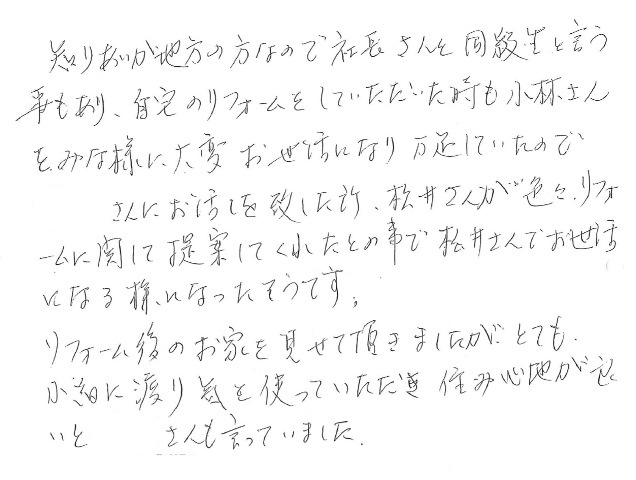 知りあいが地方の方なので社長さんと同級生と言う
事もあり、自宅のリフォームをしていただいた時も小林さん
をみな様に大変お世話になり万足していたので
さんにお話しを致した所、松井さんが色々、リフォ
ームに関して提案してくれたとの事で松井さんでお世話
になる様になったそうです。
リフォーム後のお家を見せて頂きましたが、とても
小細に渡り気を使っていただき住み心地が良
いと さんも言っていました.